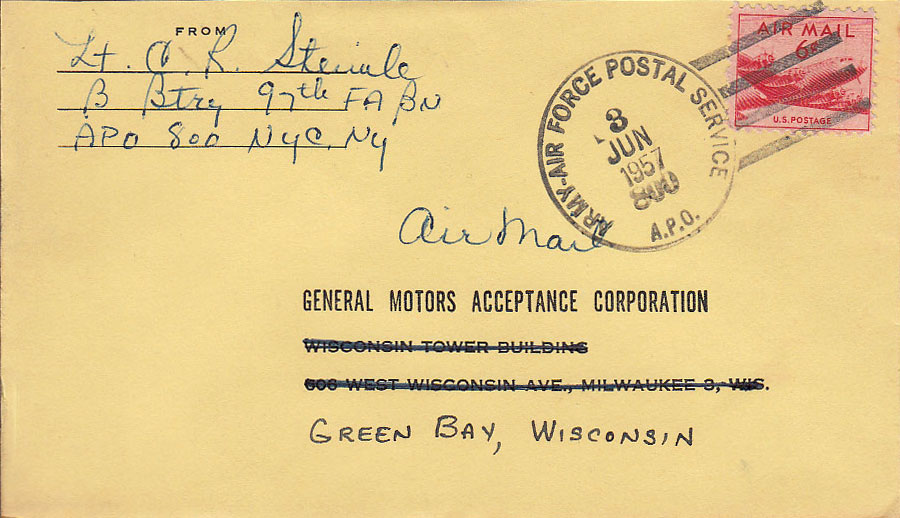 FROM
Lt. C. R. Steinle
B Btry 97th FA BN
APO 800 NYC, NY
ARMY-AIR FORCE POSTAL SERVICE
3
JUN
1957
800
A.P.O.
AIR MAIL
6¢
U.S. POSTAGE
Air Mail
GENERAL MOTORS ACCEPTANCE CORPORATION
WISCONSIN TOWER BUILDING
606 WEST WISCONSIN AVE., MILWAUKEE 3, WIS.
GREEN BAY, WISCONSIN